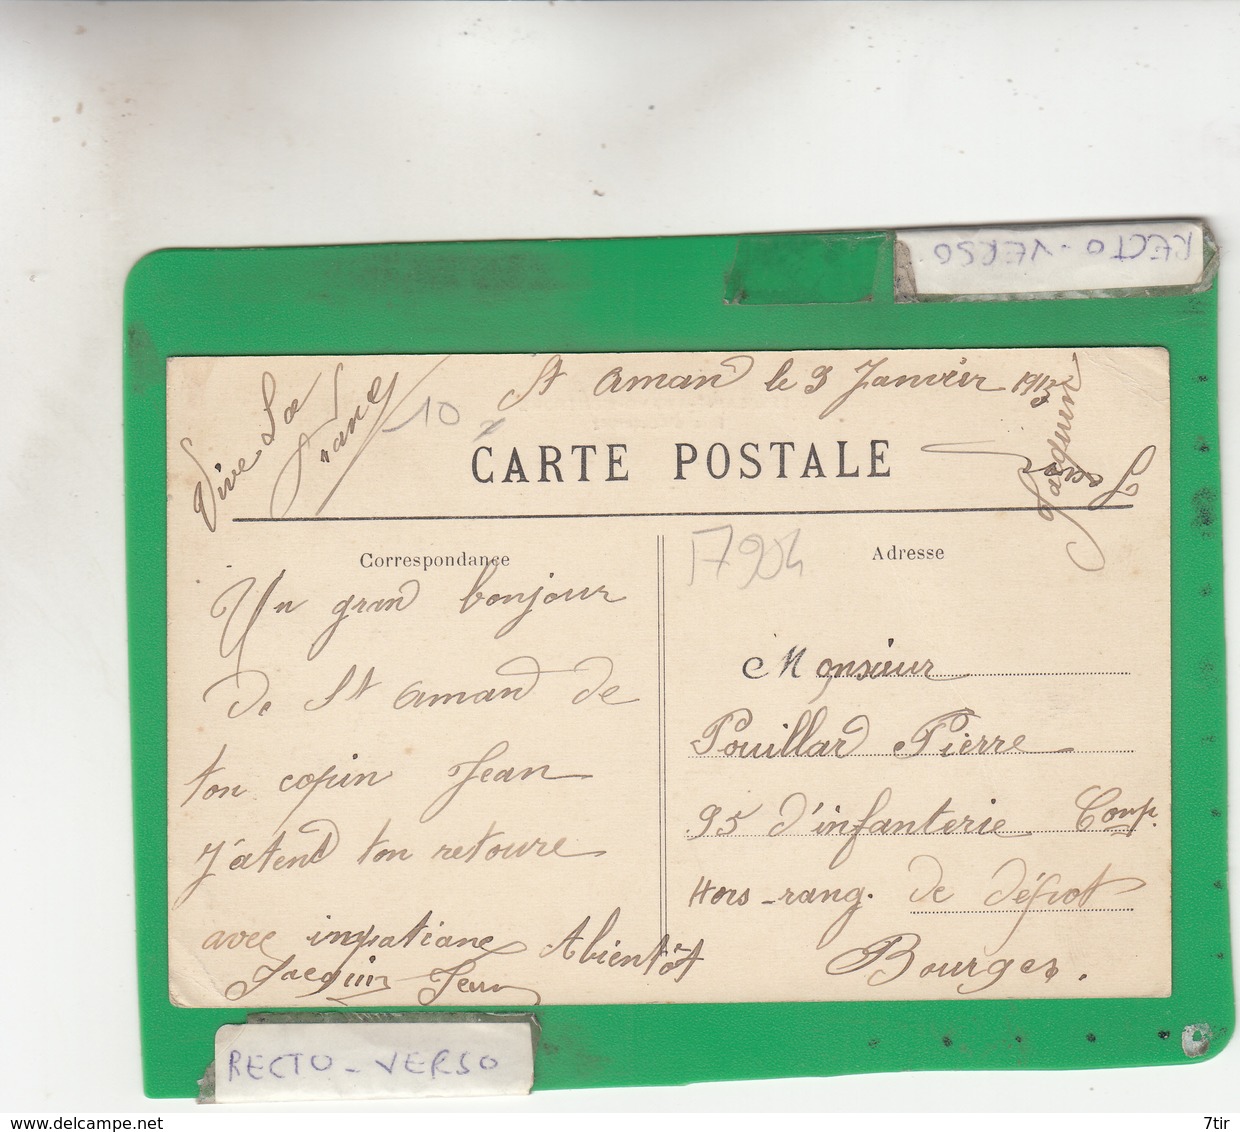 RECTO - VERSO
St Aman le 3 Janvier 1915
Vive La
Franc
10
CARTE POSTALE
Correspondance
17904
Adresse
Un gran bonjour
de St Aman de
ton copin Jean
J'atend ton retoure
avec impatiane Abientôt
Jacquin Jean
Monsieur
Pouillard Pierre
95 d'infanterie Comp.
Hors-rang. de dépot
Bourges.
RECTO - VERSO
www.delcampe.net
7tir